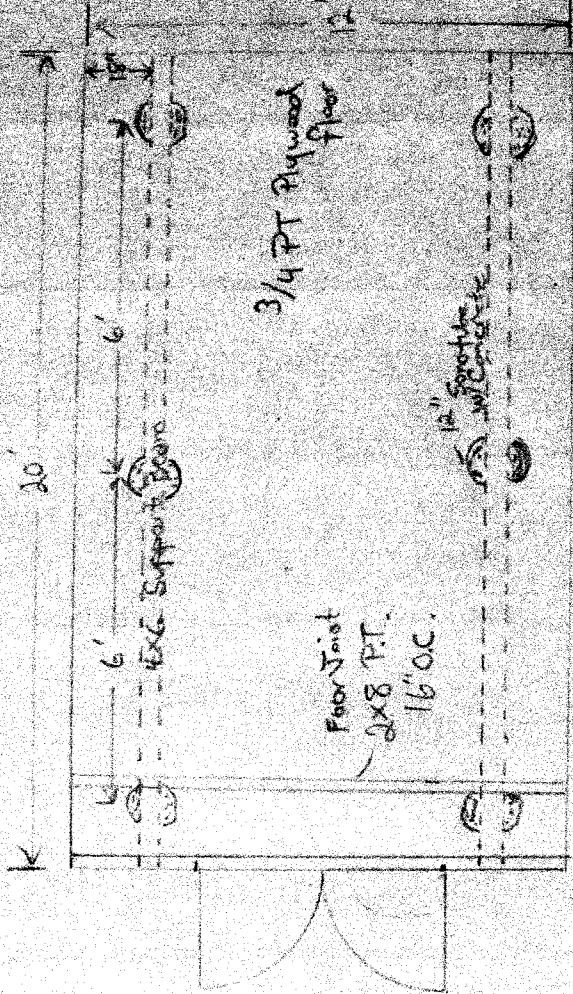 20'
12'
18"
6'
6'
4x6 Support Beam
3/4 PT Plywood
Floor
12" Sonotube
w/ Concrete
Floor Joist
2x8 P.T.
16" O.C.